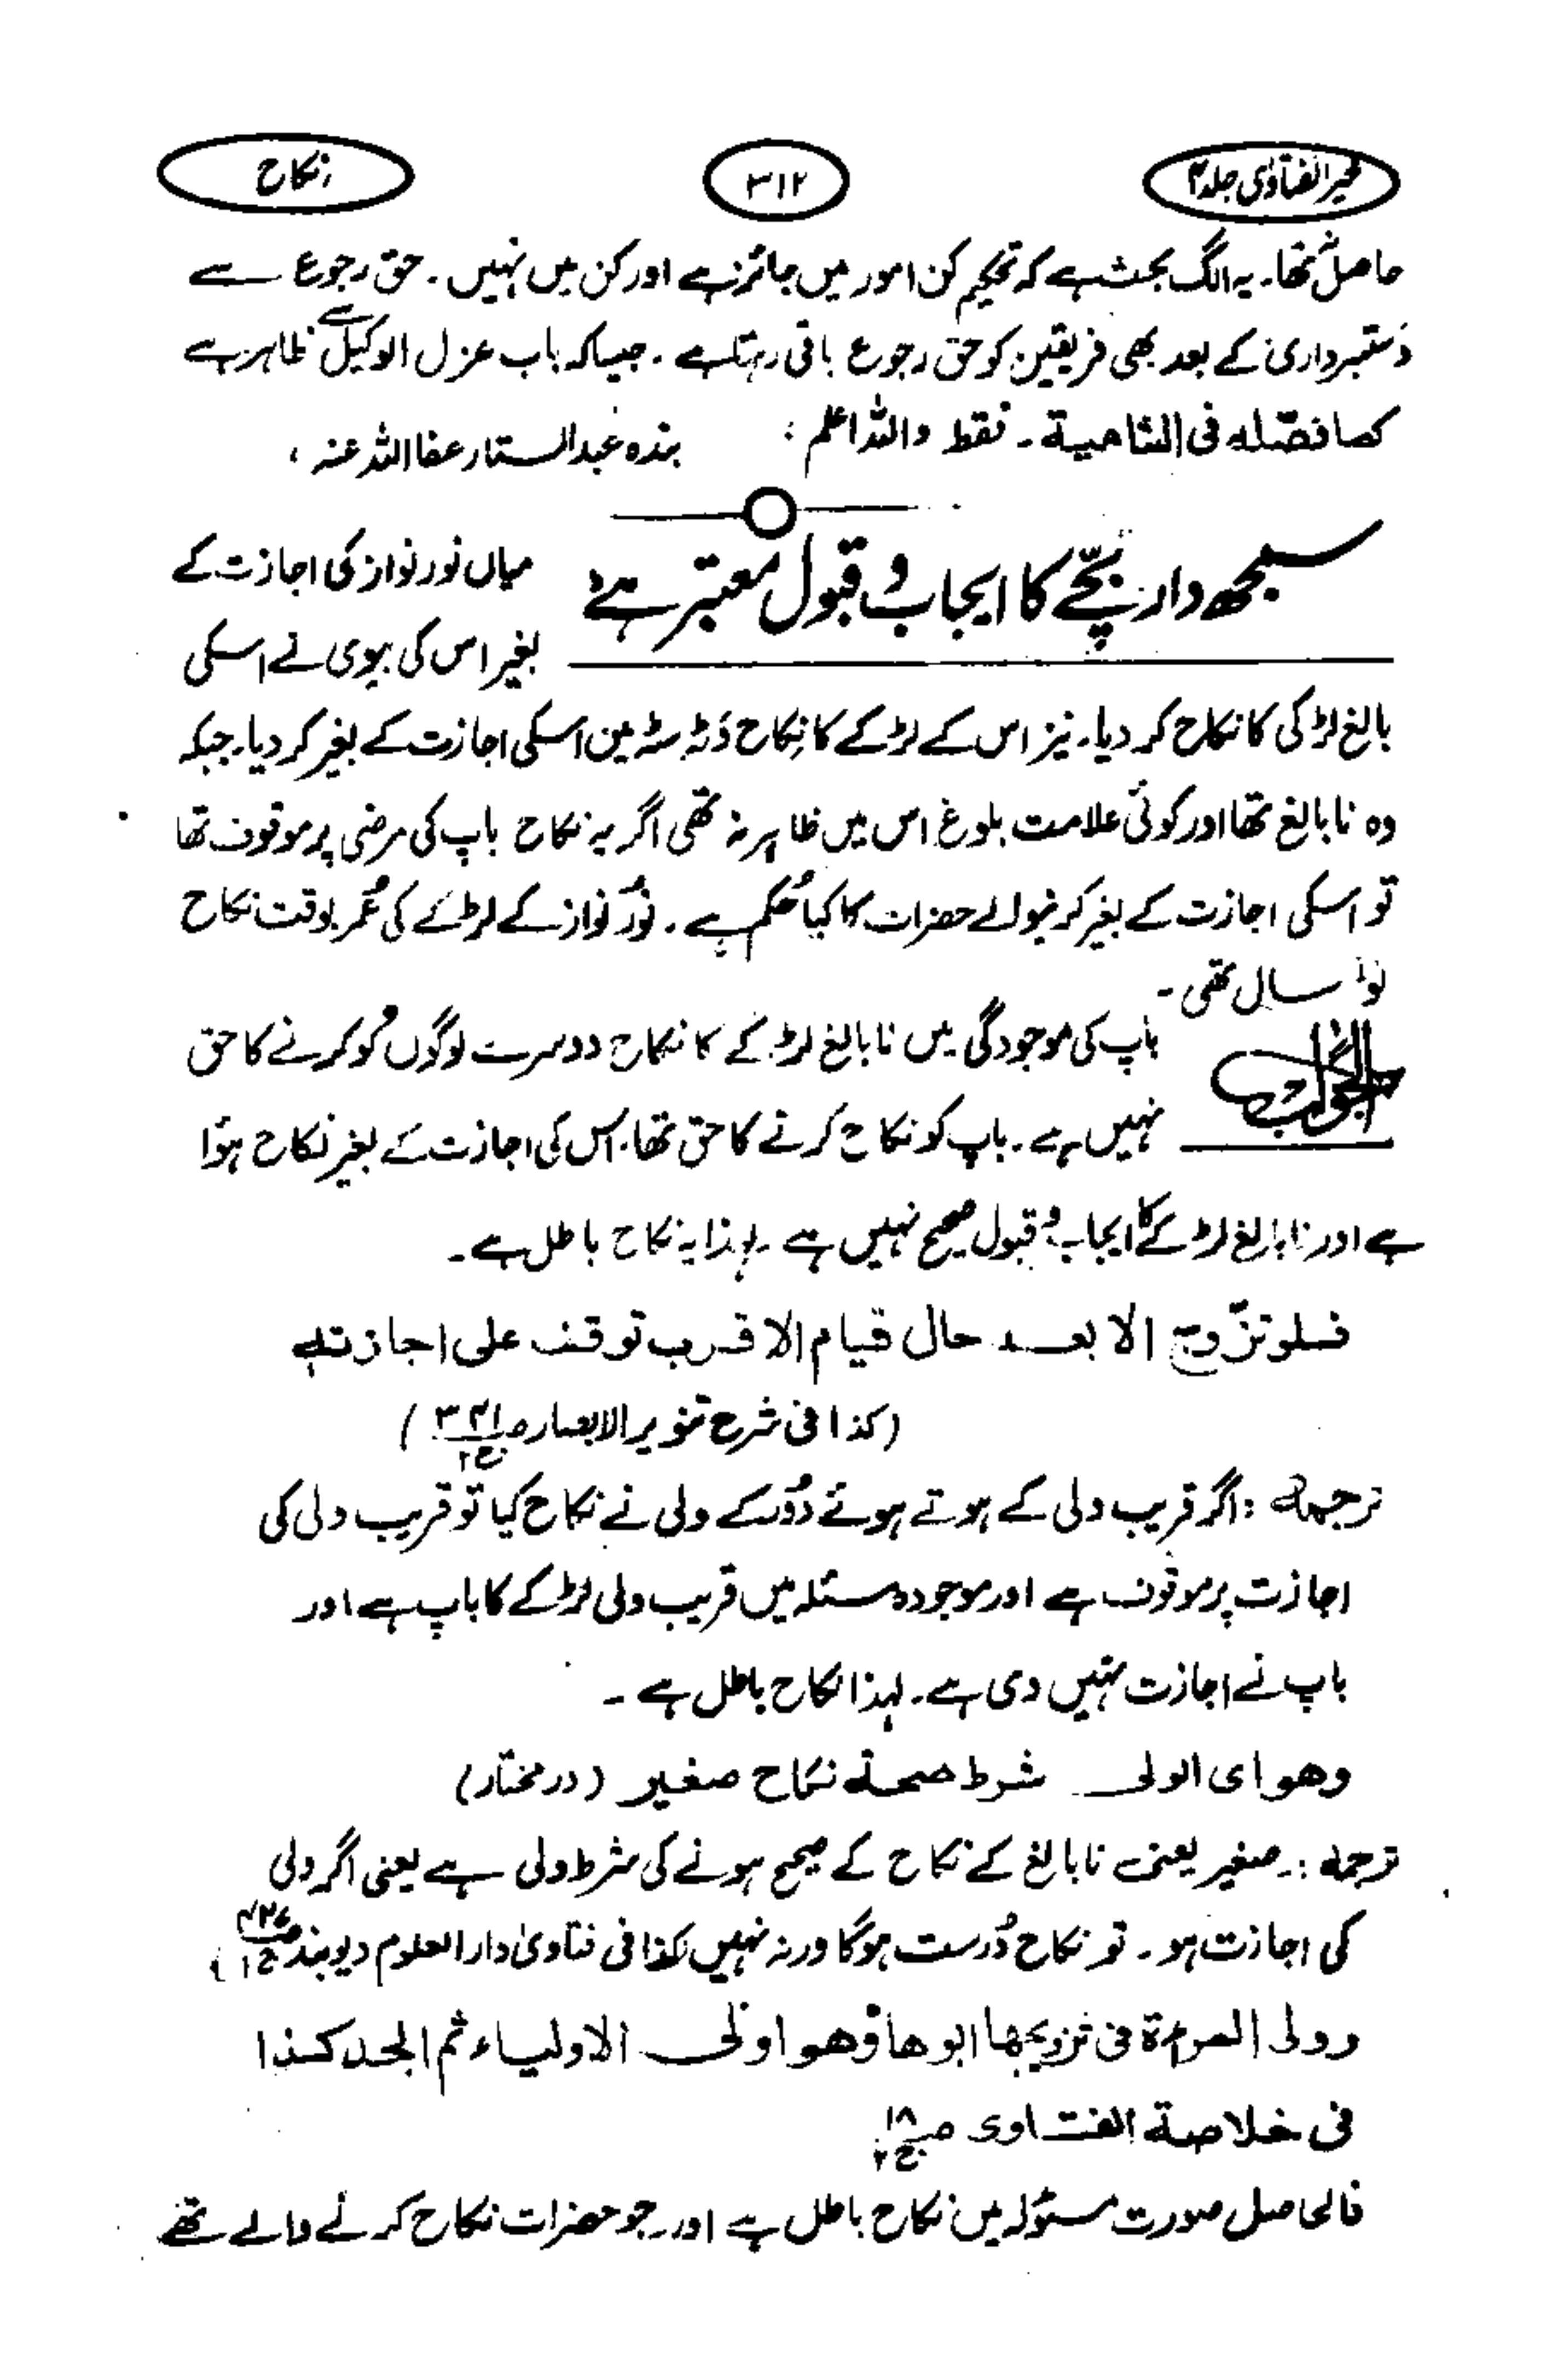 خیر الفتاوٰی جلد ۴
۳۱۲
نکاح
حاصل تھا۔ یہ الگ بحث ہے کہ تحکیم کن امور میں جائز ہے اور کن میں نہیں۔ حق رجوع سے
دستبرداری کے بعد بھی فریقین کو حق رجوع باقی رہتا ہے۔ جیسا کہ باب عزل الوکیل سے ظاہر ہے
کما فصّلہ فی الشامیة۔ فقط واللہ اعلم؛
بندہ عبدالستار عفا اللہ عنہ،
سمجھ دار بچّے کا ایجاب و قبول معتبر ہے
میاں نور نواز کی اجازت کے
بغیر اس کی بیوی نے اسکی
بالغ لڑکی کا نکاح کر دیا۔ نیز اس کے لڑکے کا نکاح وٹہ سٹہ میں اسکی اجازت کے بغیر کر دیا۔ جبکہ
وہ نابالغ تھا اور کوئی علامت بلوغ اس میں ظاہر نہ تھی اگر یہ نکاح باپ کی مرضی پر موقوف تھا
تو اسکی اجازت کے بغیر کرنیوالے حضرات کا کیا حُکم ہے۔ نور نواز کے لڑکے کی عُمر بوقت نکاح
نو سال تھی۔
الجواب
باپ کی موجودگی میں نابالغ لڑکے کا نکاح دوسرے لوگوں کو کرنے کا حق
نہیں ہے۔ باپ کو نکاح کرنے کا حق تھا۔ اس کی اجازت کے بغیر نکاح ہوٗا
ہے اور نابالغ لڑکے کا ایجاب و قبول صحیح نہیں ہے۔ لہٰذا یہ نکاح باطل ہے۔
فلو تزوّج الابعد حال قیام الاقرب توقف علی اجازتہ
(کذا فی شرح تنویر الابصار ص ج۲)
ترجمہ : اگر قریب ولی کے ہوتے ہوئے دُور کے ولی نے نکاح کیا تو قریب ولی کی
اجازت پر موقوف ہے اور موجودہ مسئلہ میں قریب ولی لڑکے کا باپ ہے اور
باپ نے اجازت نہیں دی ہے۔ لہذا نکاح باطل ہے۔
وهو ای الولی شرط صحة نکاح صغیر (در مختار)
ترجمہ :۔ صغیر یعنی نابالغ کے نکاح کے صحیح ہونے کی شرط ولی ہے یعنی اگر ولی
کی اجازت ہو۔ تو نکاح دُرست ہوگا ورنہ نہیں کذا فی فتاویٰ دارالعلوم دیوبند
وولی المرءة فی تزویجها ابوها وهو اولی الاولیاء ثم الجد کذا
فی خلاصة الفتاوی ص۱۸ ج۲
فالحاصل صورت مسئولہ میں نکاح باطل ہے اور جو حضرات نکاح کرنے والے تھے